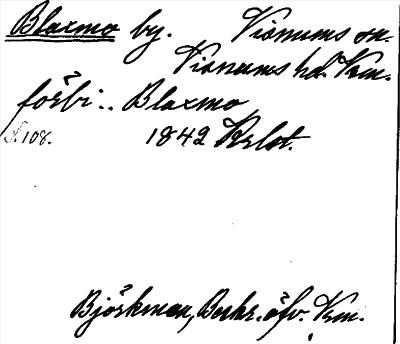 Blaxmo by. Visnums sn.
Visnums hd. Vrm.
förbi:. Blaxmo
S. 108. 1842 Krlst.
Björkman, Beskr. öfv. Vrm.